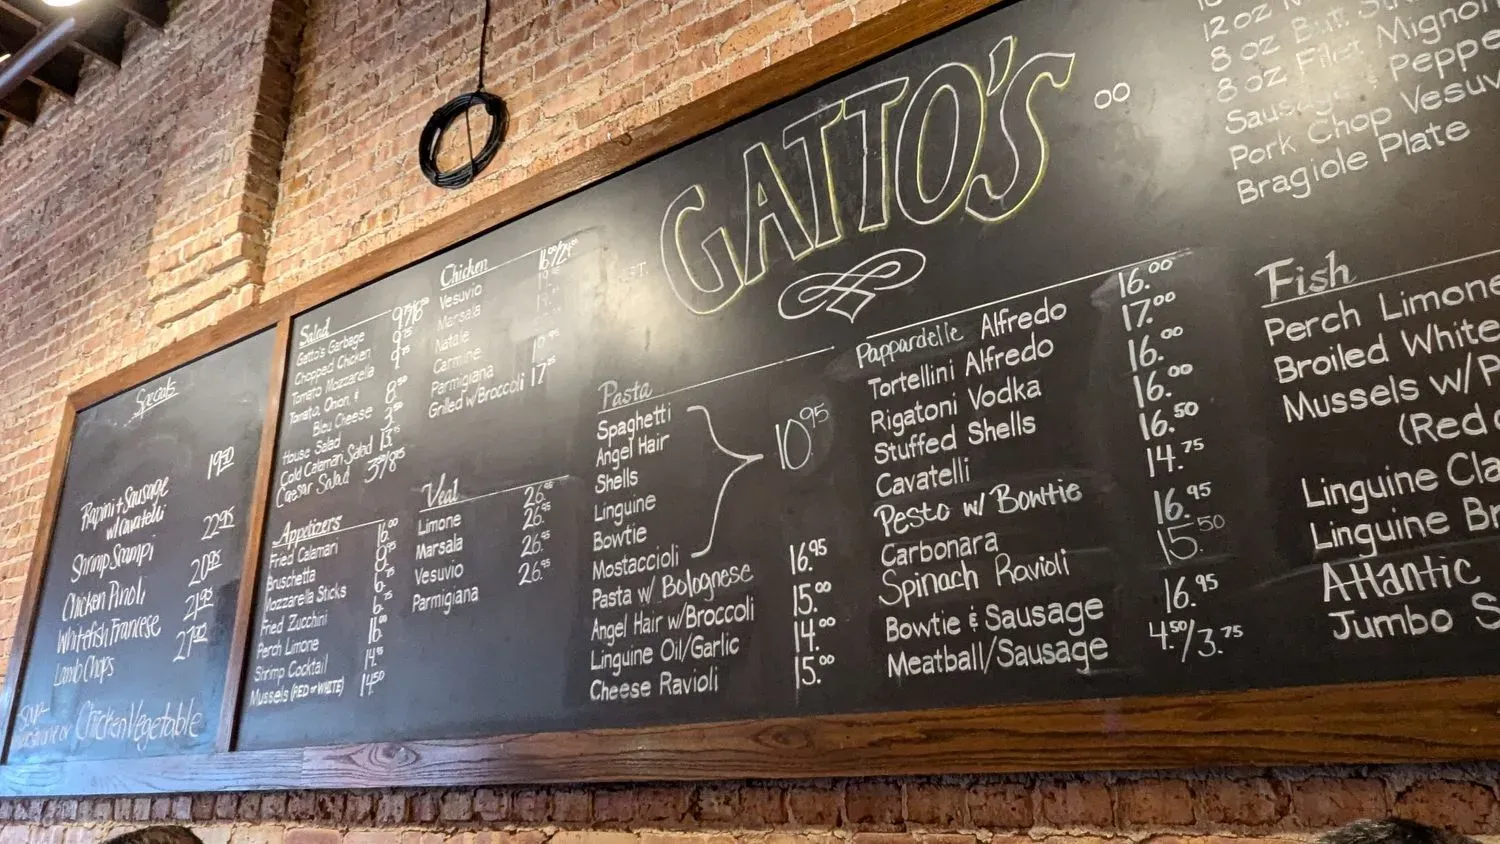 Specials
Rapini + Sausage
w/Cavatelli 19.50
Shrimp Scampi 22.95
Chicken Pinoli 20.95
Whitefish Francese 21.95
Lamb Chops
Soup
or Chicken Vegetable
Salad
Gatto's Garbage
Chopped Chicken
Tomato Mozzarella
Tomato, Onion, &
Bleu Cheese
House Salad
Cold Calamari Salad
Caesar Salad
Appetizers
Fried Calamari 16.00
Bruschetta
Mozzarella Sticks
Fried Zucchini
Perch Limone
Shrimp Cocktail
Mussels (RED or WHITE) 14.50
Chicken
Vesuvio
Marsala
Natale
Carmine
Parmigiana
Grilled w/Broccoli
Veal
Limone 26.95
Marsala 26.95
Vesuvio 26.95
Parmigiana 26.95
EST. GATTO'S 00
Pasta
Spaghetti
Angel Hair
Shells
Linguine
Bowtie
Mostaccioli
10.95
Pasta w/ Bolognese 16.95
Angel Hair w/Broccoli 15.00
Linguine Oil/Garlic 14.00
Cheese Ravioli 15.00
Pappardelle Alfredo 16.00
Tortellini Alfredo 17.00
Rigatoni Vodka 16.00
Stuffed Shells 16.00
Cavatelli 16.50
Pesto w/ Bowtie 14.75
Carbonara 16.95
Spinach Ravioli 15.50
Bowtie & Sausage 16.95
Meatball/Sausage 4.50/3.75
12 oz
8 oz Butt
8 oz Filet Mignon
Sausage & Peppe
Pork Chop Vesuv
Bragiole Plate
Fish
Perch Limone
Broiled White
Mussels w/P
(Red o
Linguine Cla
Linguine Br
Atlantic
Jumbo S